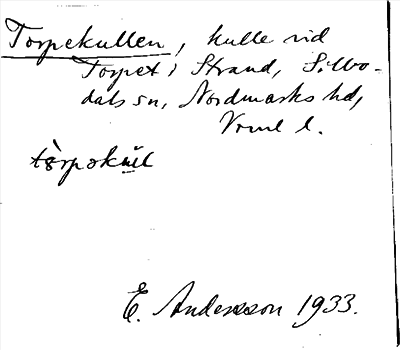 Torpekullen, kulle vid
Torpet i Strand, Silbo-
dals sn, Nordmarks hd,
Vrml l.
E. Andersson 1933.